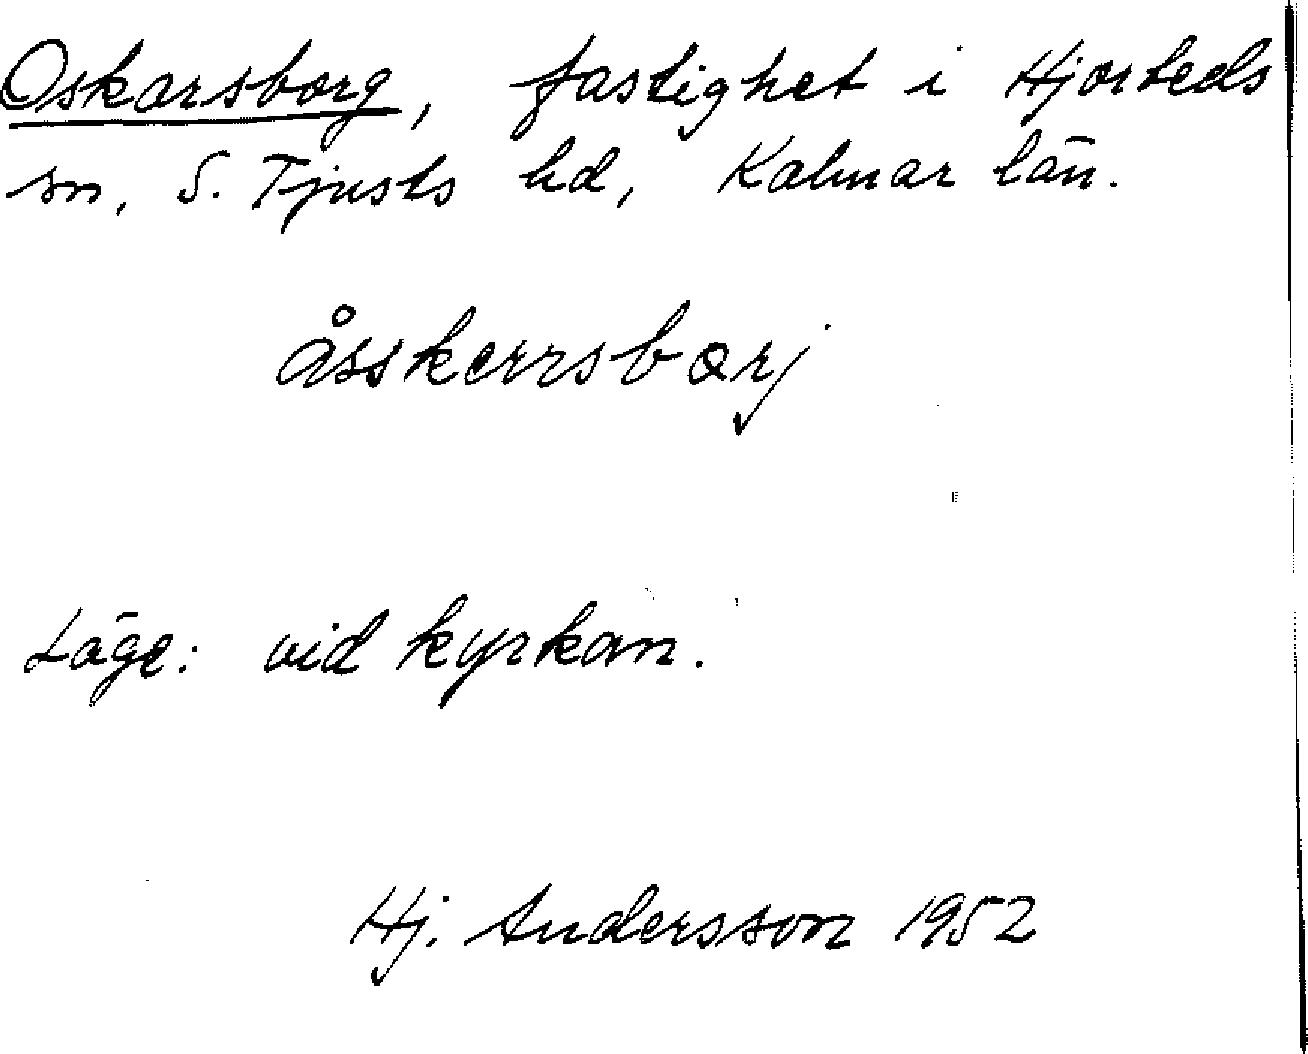 Oskarsborg, fastighet i Hjorteds
sn, S. Tjusts hd, Kalmar län.
åsskerrsbårj
Läge: vid kyrkan.
Hj. Andersson 1952